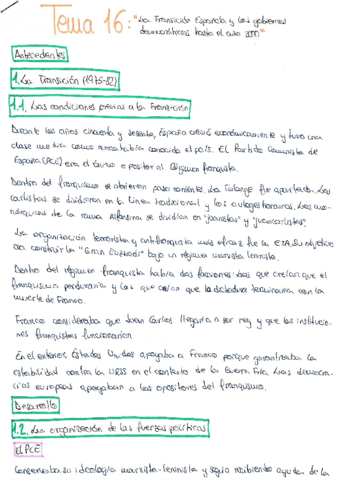 Tema 16: "La Transición Española y los gobiernos
democráticos hasta el año 2000"
Antecedentes
1. La Transición (1975-82)
1.1. Las condiciones previas a la Transición
Durante los años cincuenta y sesenta, España creció económicamente y tuvo una
clase media como nunca había conocido el país. El Partido Comunista de
España (PCE) era el único opositor al Régimen franquista.
Dentro del franquismo se abrieron posiciones. La Falange fue apartada. Los
carlistas se dividieron en la línea tradicional y los autogestionarios. Los mo-
nárquicos de la rama Alfonsina se dividían en "juanistas" y "juancarlistas".
La organización terrorista y antifranquista más eficaz fue la ETA. Su objetivo
era construir la "Gran Euzkadi" bajo un régimen marxista-leninista.
Dentro del régimen franquista había dos previsiones: los que creían que el
franquismo perduraría y los que creían que la dictadura terminaría con la
muerte de Franco.
Franco consideraba que Juan Carlos llegaría a ser rey y que las institucio-
nes franquistas funcionarían
En el exterior, Estados Unidos apoyaba a Franco porque garantizaba la
estabilidad contra la URSS en el contexto de la Guerra Fría. Las democra-
cias europeas apoyaban a los opositores del franquismo.
Desarrollo
1.2. La organización de las fuerzas políticas
El PCE
Conservaba su ideología marxista-leninista y seguía recibiendo ayudas de la